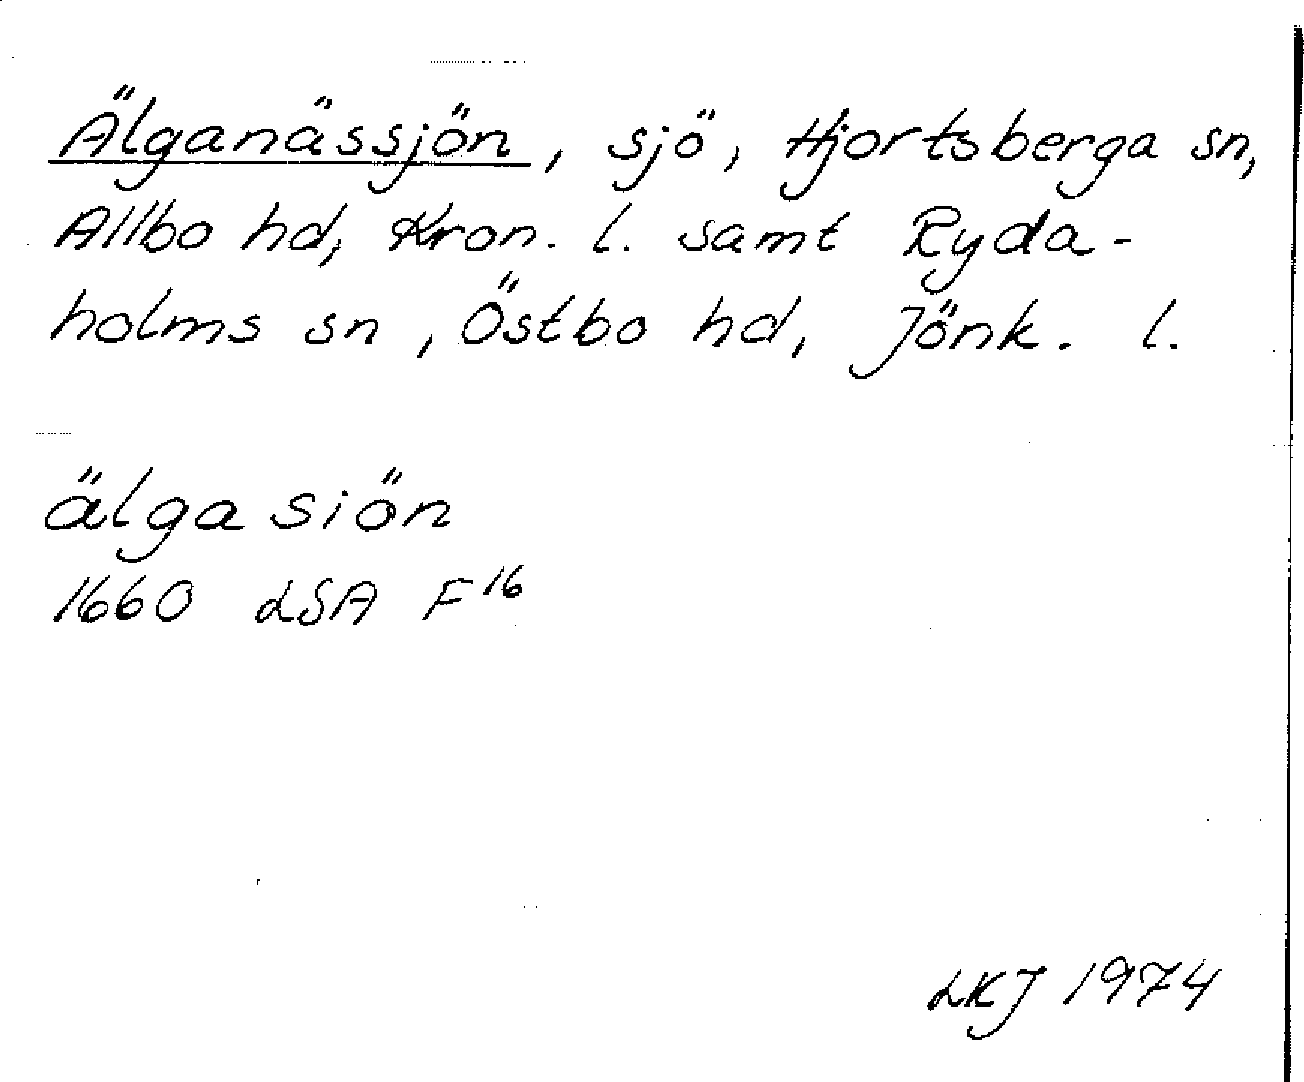 Älganässjön, sjö, Hjortsberga sn,
Allbo hd, Kron. l. samt Ryda-
holms sn, Östbo hd, Jönk. l.
älga siön
1660 LSA F16
LKJ 1974